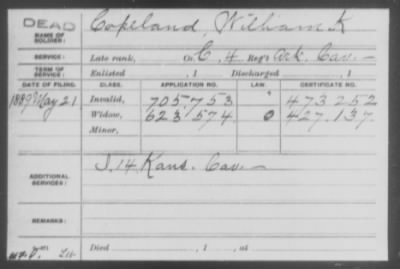 DEAD
NAME OF SOLDIER: Copeland, William K
SERVICE: Late rank, Co. C, 4 Reg't Ark. Cav.
TERM OF SERVICE: Enlisted , 1 Discharged , 1
DATE OF FILING. CLASS. APPLICATION NO. LAW. CERTIFICATE NO.
1889 May 21 Invalid, 705.753 473 252
Widow, 623 574 0 427.137
Minor,
ADDITIONAL SERVICES: I. 14 Kans. Cav.
REMARKS:
Died , 1 , at